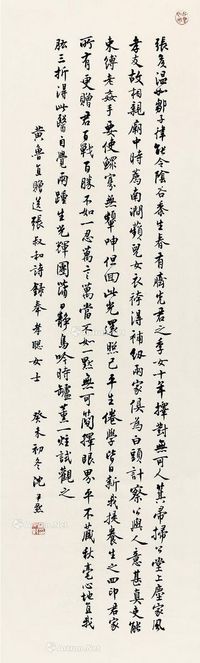 張侯温如鄒子律能令陰谷黍生春有齊先君之季女十年擇對無可人箕帚掃公堂上塵家風
孝友故相親廟中時薦南澗蘋兒女衣袴得補紉兩家俱為白頭計察公與人意甚真吏能
束縛老姦手要使鰥寡無顰呻但回此光還照己平生倦學皆日新我提養生之四印君家
所有更贈君百戰百勝不如一忍萬言萬當不如一默無可簡擇眼界平不藏秋毫心地直我
肱三折得此醫自覺兩踵生光輝團蒲日靜鳥吟時罏薰一炷試觀之
黃魯直贈送張叔和詩錄奉孝聰女士
癸未初冬沈尹默